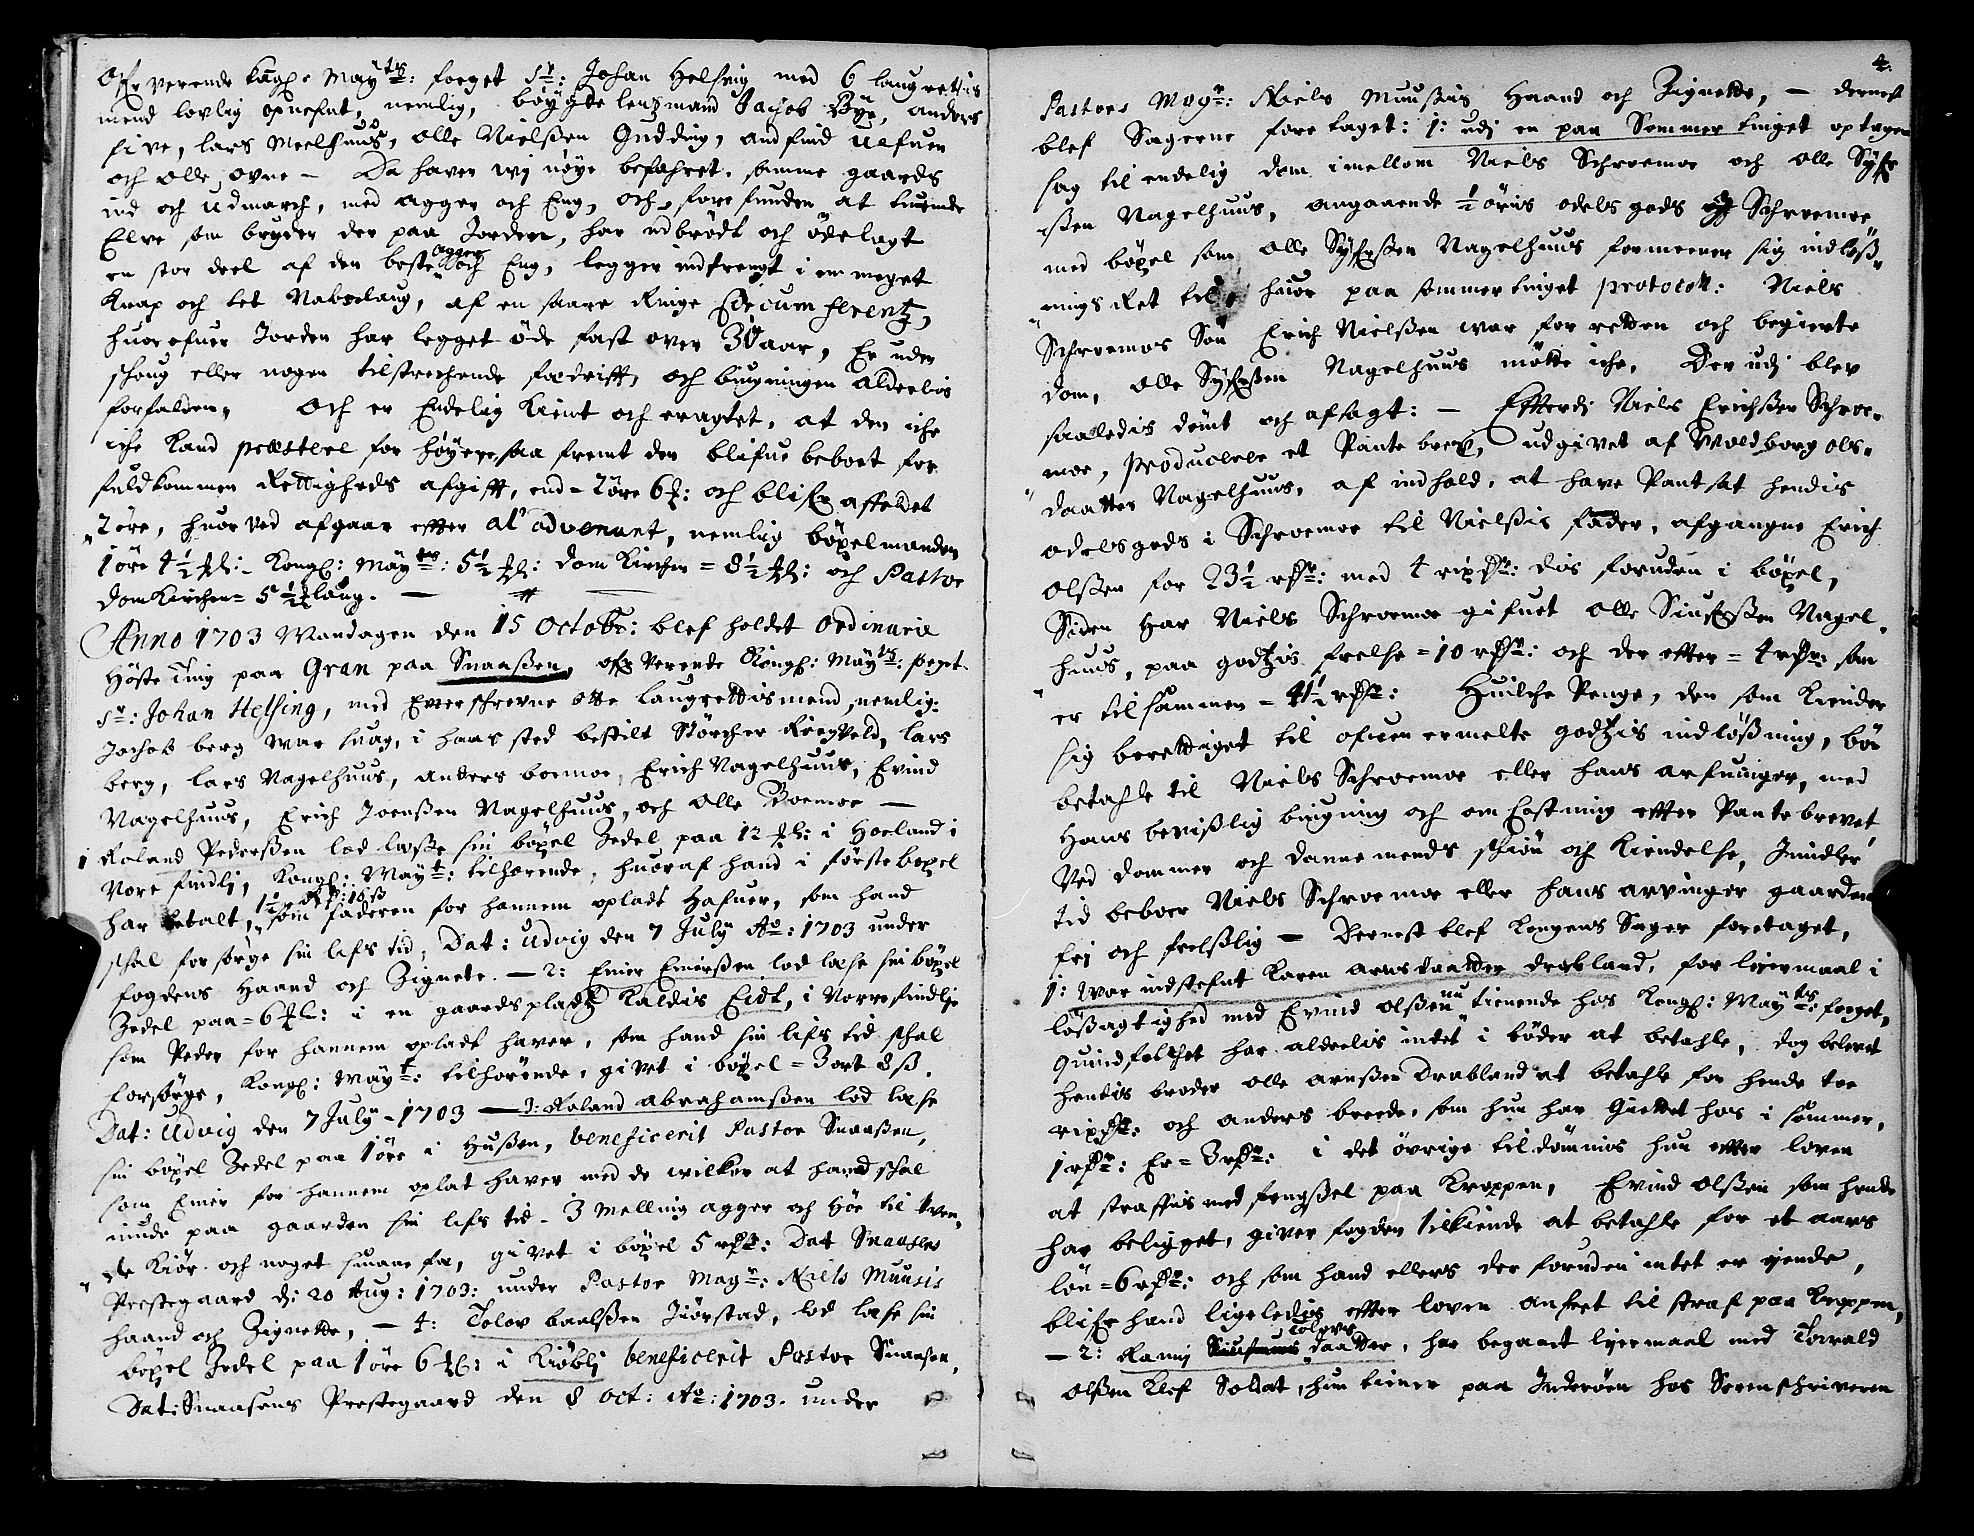 Ofr verende Kongl: May:tts: foeget Sr: Johan Helsing med 6 laugrettis
mend lovlig opnefnt, nemlig, böygde lensmand Jachob Bye, anders
five, lars Meelhuus, olle Nielßen Gudding, andfind
och olle ovne – Da haver wj nöye befahret, samme gaards
ind och udmarch, med agger och Eng, och forefunden at
Elve som bryder der paa Jorden, har udbrödt och ödelagt
en stor deel af den beste agger och Eng, legger indtrengt i en meget
Knap och tet Nabolaug, af en saare Ringe Circumferentz,
huorefuer Jorden har legget öde fast over 30 aar, Er uden
schoug eller nogen tilstrechende fædrifft, och bugningen aldeelis
forfalden, Och er Endelig kient och eragtet, at den iche
iche kand præsteres for höyere, saa fremt den blifue beboet for
fuldkommen Rettigheds afgifft, end = 2 öre 6 : och blifr affeldet
2 öre, huor ved afgaar efter al' advenant, nemlig böxelmanden
1 öre 4½ : Kongl: May:tts: 5½ : dom Kirchen = 8½ : och Pastor
domKirchen = 5½ laug. –
Anno 1703 Mandagen den 15 Octobr: blef holdet ordinarie
Höste Ting paa Gran paa Snaaßen, ofr Verende Kongl: May:tts: foget
Sr: Johan Helsing, med Efterschrevne otte laugrettismend, nemlig:
Jachob berg war suag, i hans sted bestilt Störcher Fiergveld, lars
berg, lars Nagelhuus, anders boemoe, Erich Nagelhuus, Evind
Nagelhuus, Erich Joenßen Nagelhuus, och olle Boemoe –
1 Roland Pederßen lod læsse sin böxel Zedel paa 12 : i Hoeland i
Nore findlj, Kongl: May:t: tilhørende, huoraf hand i första boxel
har betalt, 1½ : 16 ß som faderen for hannem opladt hafuer, som hand
schal forsörge sin lifs tid, Dat: Udvig den 7 July Ao: 1703 under
fogdens Haand och Zignete. – 2: Einer Einerßen lod læse sin böxel
Zedel paa = 6 : i en gaardspladtz Kaldis Eidt, i Norrefindlje
som Peder for hannem opladt haver, som hand sin lifs tid schal
forsörge, Kongl: May:t: tilhörende, givet i böxel = 3 ort 8 ß.
Dat: Udvig den 7 July – 1703 – 3: Roland abrahamßen lod læse
sin böxel Zedel paa 1 öre i Hußen, beneficerit Pastor Snaaßen,
som Einer for hannem oplat haver med de wilkor at hand schal
niude paa gaarden sin lifs tid – 3 Melling agger och Höe til tven,
de Kiör och noget smaae fæ, givet i böxel 5 rdr: Dat Snaasens
Prestegaard d: 20 Aug: 1703: under Pastor Magr: Niels Muusis
haand och Zignette, – 4: Tolov baalßen Jiörstad, lod læse sin
böxel Zedel paa 1 öre 6 : i Kiöblj beneficerit Pastor Snaasen,
Dat: Snaasens Prestegaard den 8 Oct: Ao: 1703. under
4.
Pastors Magr: Niels Muußis Haand och Zignette, – dernest
blef Sagerne foretaget: 1: udj en paa Sommertinget optagen
sag til endelig dom imellom Niels Schroemoe och olle Syfr
ißen Nagelhuus, angaaende ½ öris odels gods i Schroemoe
med böxel som olle Syfrßen Nagelhuus formeener sig indlöß,
nings Ret til, huor paa sommertinget protocoll: Niels
Schroemos Sön Erich Nielßen war for retten och begierte
dom, olle Syfrßen Nagelhuus mötte iche, Der udj blev
saaledis dömt och afsagt: – Efterdj Niels Erichßen Schroe,
moe, producerer et Pante brev, udgivet af Woldborg ols,
daatter Nagelhuus, af indhold, at have Pantsat hendis
odelsgods i Schroemoe til Nielßis fader, afgangne Erich
olßen for 23½ rdr: med 4 rixdr: dis foruden i böxel,
Siden har Niels Schroemoe gifuet olle Siufrßen Nagel,
huus, paa godtzis frelse = 10 rdr: och der efter = 4 rdr: som
er tilsammen = 41½ rdr: Huilche Penge, den som kiender
sig berettiget til ofuen ermelte godtzis indlößning, bör
betahle til Niels Schroemoe eller hans arfuinger, med
Hans bevißlig bugning och om kostning efter Pantebrevet
Ved dommer och dannemends schiön och Kiendelse, Imidler
tid beboer Niels Schroemoe eller hans arvinger gaarden
frj och frelßlig – Dernest blef Kongens Sager foretaget,
1: war indstefnt Karen arnsdaatter drabland, for leiermaal i
lößagtighed med Evind olßen nu tienende hos Kongl: May:tts: foeget,
Quindfolchet har aldeelis intet i böder at betahle, dog belovet
hendis broder olle arnßen Drabland at betahle for hende toe
rixdr: och anders breede, som hun har giettet hos i sommer,
1 rdr: Er = 3 rdr: i det övrige tildömmis hun efter loven
at straffis med fengßel paa Kroppen, Evind olßen som hende
har beligget, giver fogden tilkiende at betahle for et aars
lön = 6 rdr: och som hand ellers der foruden intet er ejende,
blifr hand ligeledis efter loven anseet til straf paa kroppen,
– 2: Ranj Tolovs daatter, har begaaet lejermaal med Torvald
olßen Klef Soldat, hun tiener paa Inderöen hos Sorenschriveren